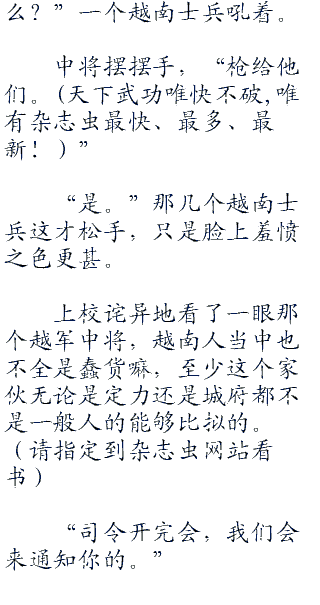 么？”一个越南士兵吼着。
中将摆摆手，“枪给他
们。(天下武功唯快不破,唯
有杂志虫最快、最多、最
新！)”
“是。”那几个越南士
兵这才松手，只是脸上羞愤
之色更甚。
上校诧异地看了一眼那
个越军中将，越南人当中也
不全是蠢货嘛，至少这个家
伙无论是定力还是城府都不
是一般人的能够比拟的。
（请指定到杂志虫网站看
书）
“司令开完会，我们会
来通知你的。”